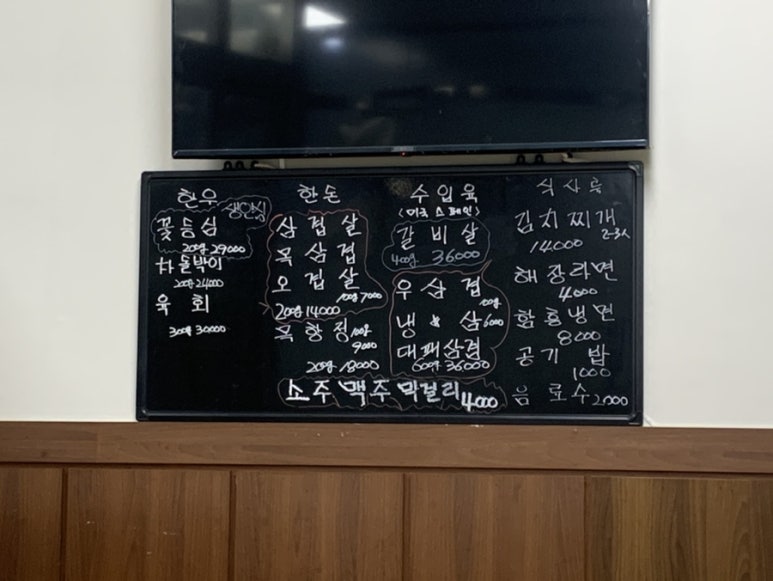 한우
생안심
꽃등심
200g 29000
차돌박이
200g 24000
육 회
300g 30000
한돈
삼 겹 살
목 삼 겹
오 겹 살
100g 7000
200g 14000
목 항 정 100g
9000
200g 18000
수입육
(미국 스페인)
갈 비 살
400g 36000
우 삼 겹
100g
냉 삼 6000
대패삼겹
600g 36000
소주 맥주 막걸리 4000
식사류
김치찌개
2-3人
14000
해장라면
4000
함흥냉면
8000
공기 밥
1000
음 료 수 2000